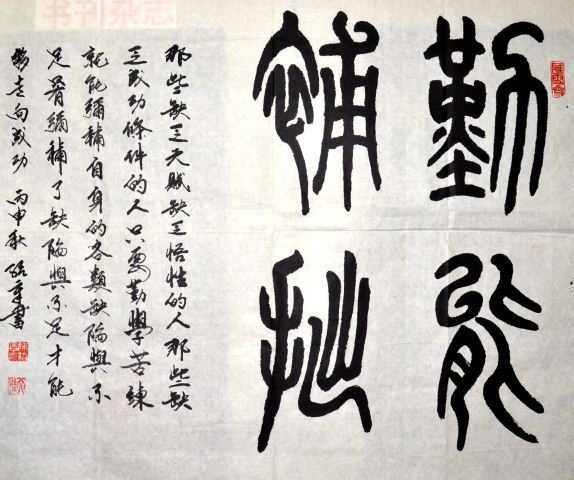 勤能
補拙
那些缺乏天賦缺乏悟性的人那些缺
乏成功條件的人只要勤學苦練
就能彌補自身的各類缺陷與不
足彌補了缺陷與不足才能
夠走向成功 丙申秋 書
书刊杂志